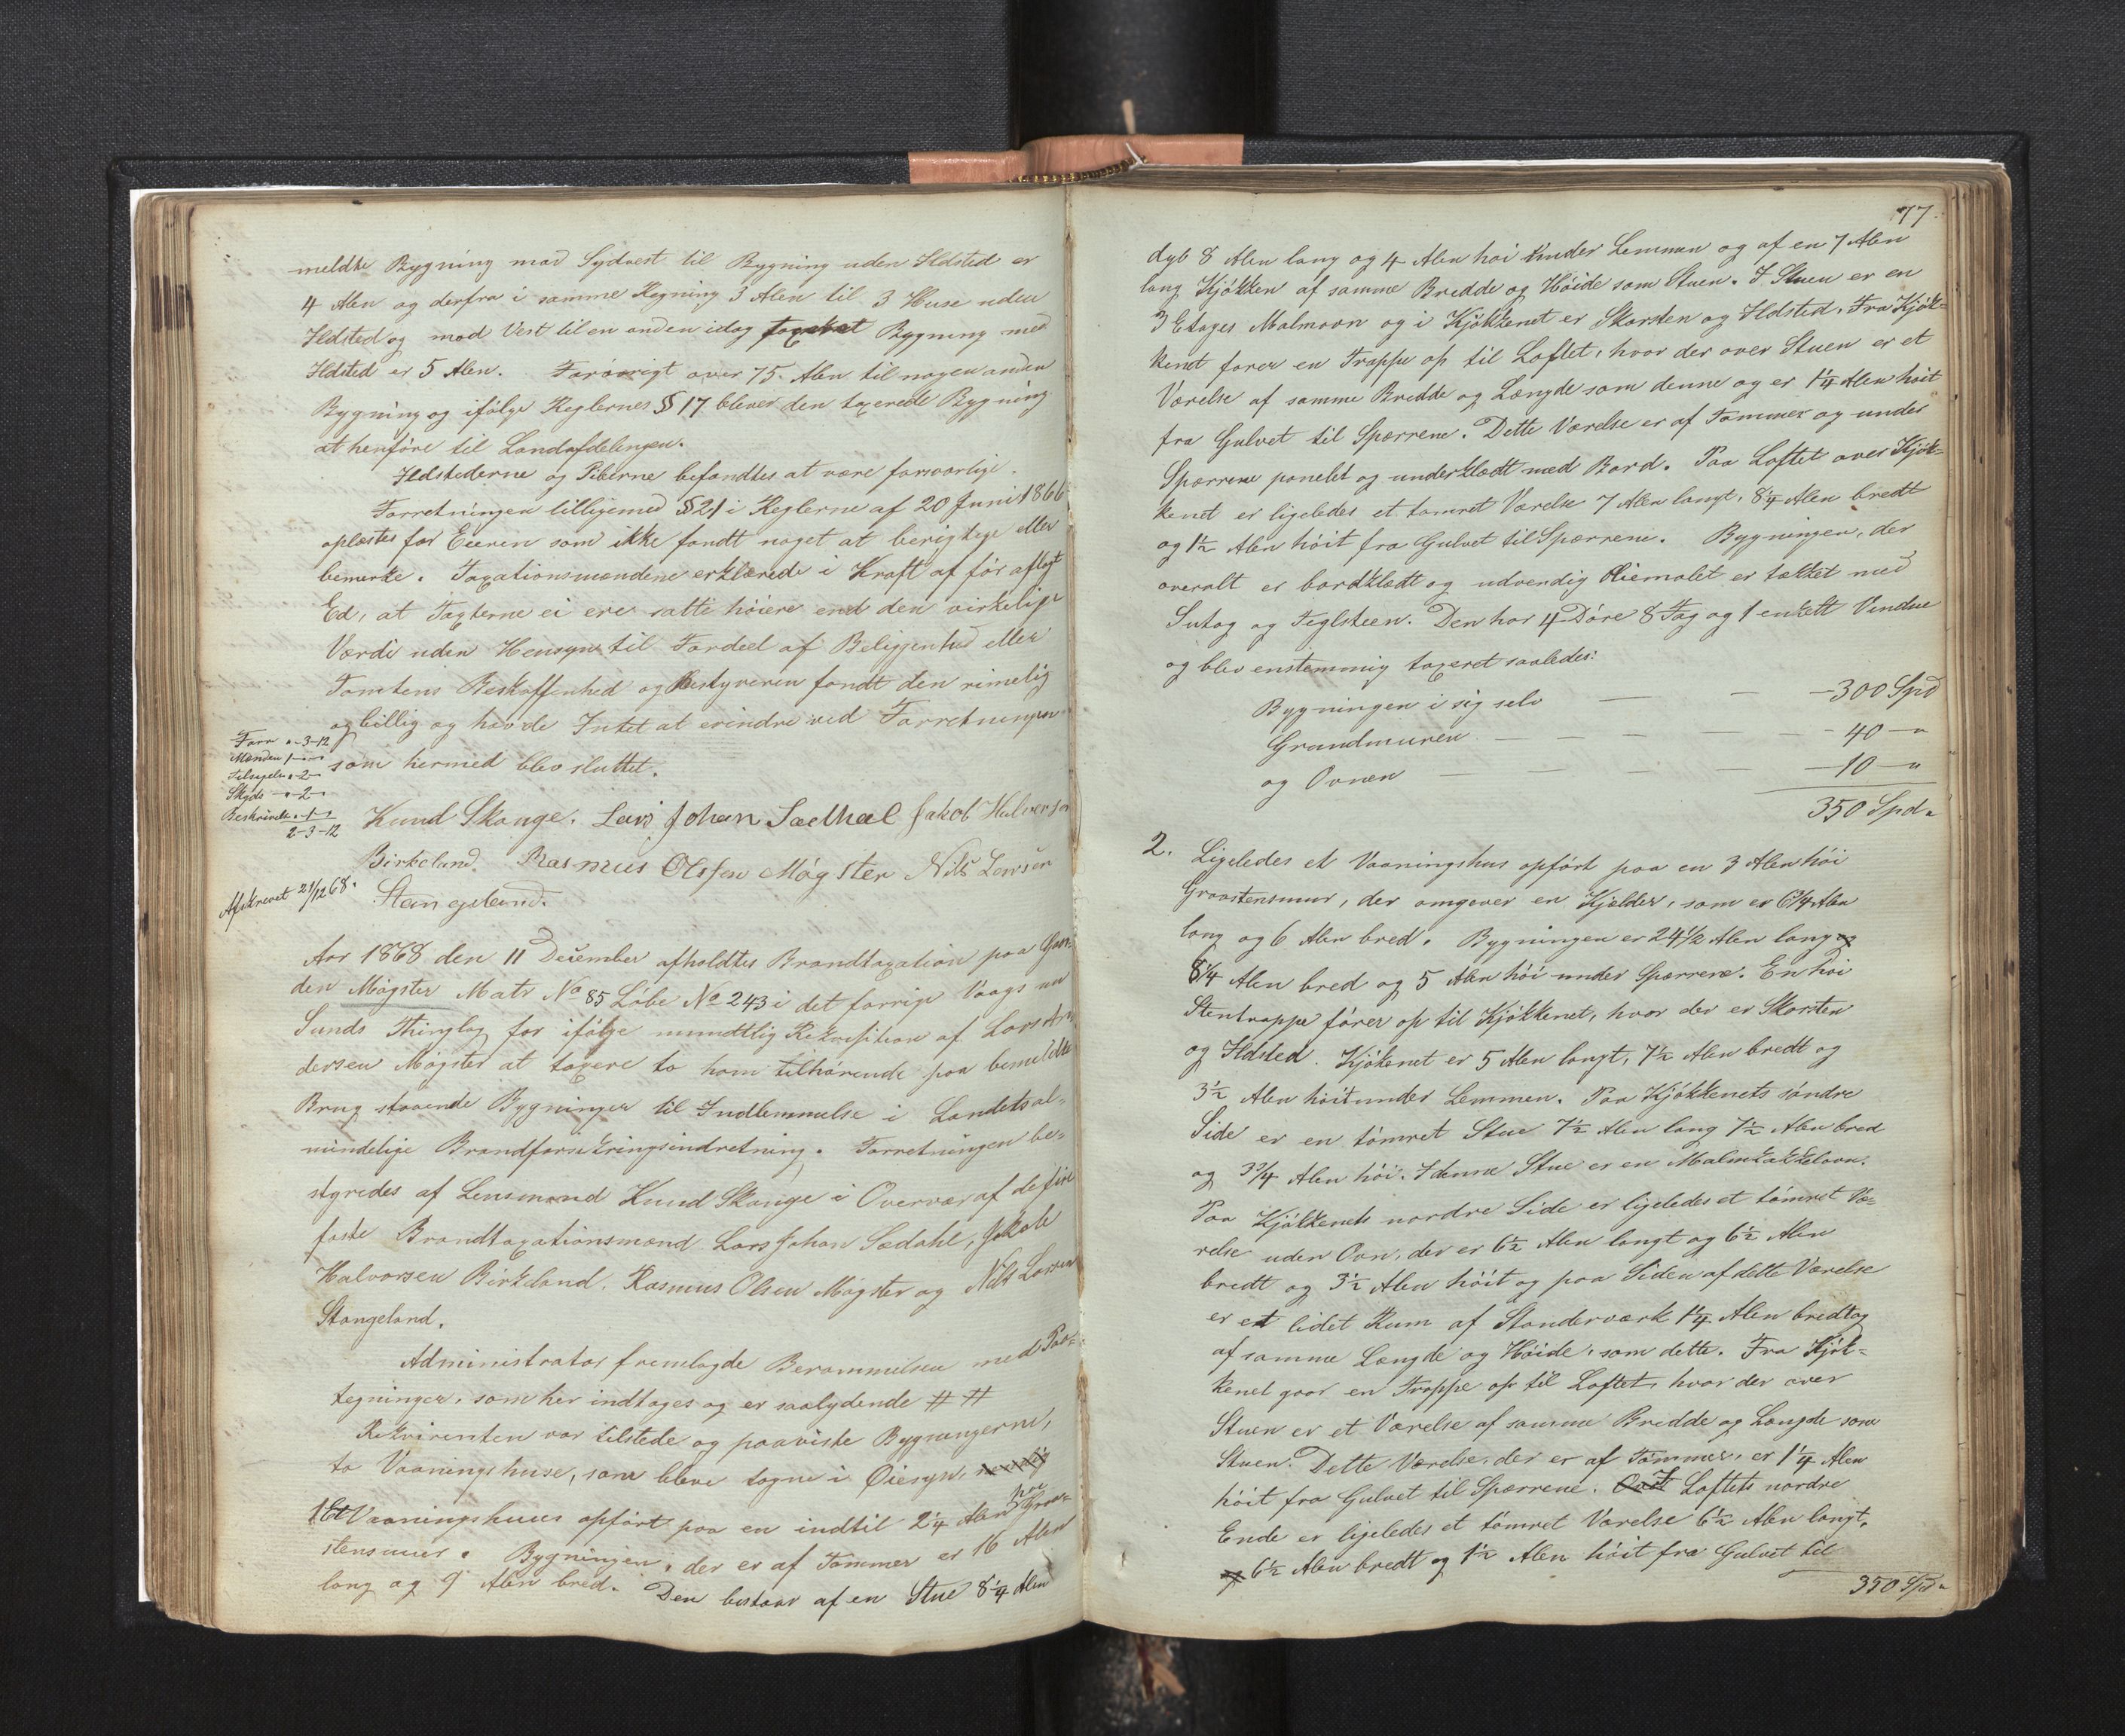 meldte Bygning mod Sydvest til Bygning uden Ildsted er
4 Alen og derfra i samme Regning 3 Alen til 3 Huse uden
Ildsted og mod Vest til en anden idag taxeret Bygning med
Ildsted er 5 Alen. Forøvrigt over 75 Alen til nogen anden
Bygning og ifølge Reglernes § 17 bliver den taxerede Bygning
at henføre til Landafdelingen.
Ildstederne og Piberne befandtes at være forsvarlige.
Forretningen tilligemed § 21 i Reglerne af 20 Juni 1866
oplæstes for Eieren som ikke fandt noget at berigtige eller
bemærke. Taxationsmændene erklærede i Kraft af før aflagt
Ed, at Taxterne ei ere satte høiere end den virkelige
Værdi uden Hensyn til Fordeel af Beliggenhed eller
Tomtens Beskaffenhed og Bestyreren fandt den rimelig
og billig og havde Intet at erindre ved Forretningen
som hermed blev sluttet.
Forr " -3-12
Mænden 1-"-"
Tilsigels " -2-"
Skyds " -2-"
Beskrivels " -1-"
2-3-12
Knud Skauge. Lars Johan Sædhal Jakob Halvorsen
Birkeland. Rasmus Olssen Møgster Nils Larsen
Stangeland.
Afskrevet 21/12 68.
Aar 1868 den 11 December afholdtes Brandtaxation paa Gaar-
den Møgster Matr No 85 Løbe No 243 i det forrige Vaags nu
Sunds Thinglag for ifølge mundtlig Rekvisition af Lars An
dersen Møgster at taxere to ham tilhørende paa bemeldte
Brug staaende Bygninger til Indlemmelse i Landets al-
mindelige Brandforsikringsindretning. Forretningen be-
styredes af Lensmand Knud Skauge i Overvær af de fire
faste Brandtaxationsmænd Lars Johan Sædahl, Jakob
Halvorsen Birkeland, Rasmus Olsen Møgster og Nils Larsen
Stangeland.
Administrator fremlagde Berammelsen med Paa-
tegninger, som her indtages og er saalydende # #
Rekvirenten var tilstede og paaviste Bygningerne,
to Vaaningshuse, som bleve tagne i Øiesyn
1 Et Vaaningshuus opført paa en indtil 2 1/4 Alen høi Graa-
stensmuur. Bygningen, der er af Tømmer er 16 Alen
lang og 9 Alen bred. Den bestaar af en Stue 8 1/4 Alen
77.
dyb 8 Alen lang og 4 Alen høi under Lemmen og af en 7 Alen
lang Kjøkken af samme Bredde og Høide som Stuen. I Stuen er en
3 Etages Malmovn og i Kjøkkenet er Skorsten og Ildsted. Fra Kjøk-
kenet fører en Trappe op til Loftet, hvor der over Stuen er et
Værelse af samme Bredde og Længde som denne og er 1 1/4 Alen høit
fra Gulvet til Sparrene. Dette Værelse er af Tømmer og under
Sparrene panelet og underklædt med Bord. Paa Loftet over Kjøk-
kenet er ligeledes et tømret Værelse 7 Alen langt, 8 1/4 Alen bredt
og 1 1/2 Alen høit fra Gulvet til Sparrene. Bygningen, der
overalt er bordklædt og udvendig Oliemalet er tækket med
Sutag og Teglsteen. Den har 4 Døre 8 Fag og 1 enkelt Vindue
og blev enstemmig taxeret saaledes:
Bygningen i sig selv — — — 300 Spd
Grundmuren — — — — — 40 — "
og Ovnen — — — — — 10 — "
350 Spd.
2. Ligeledes et Vaaningshus opført paa en 3 Alen høi
Graastensmuur, der omgiver en Kjælder, som er 6 3/4 Alen
lang og 6 Alen bred. Bygningen er 24 1/2 Alen lang og
8 1/4 Alen bred og 5 Alen høi under Sparrene. En høi
Stentrappe fører op til Kjøkkenet, hvor der er Skorsten
og Ildsted. Kjøkenet er 5 Alen langt, 7 1/2 Alen bredt og
3 1/2 Alen høit under Lemmen. Paa Kjøkkenets søndre
Side er en tømret Stue 7 1/2 Alen lang 7 1/2 Alen bred
og 3 3/4 Alen høi. I denne Stue er en Malmkakkelovn.
Paa Kjøkkenets nordre Side er ligeledes et tømret Væ-
relse uden Ovn, der er 6 1/2 Alen langt og 6 1/2 Alen
bredt og 3 1/2 Alen høit og paa Siden af dette Værelse
er et lidet Rum af Standerværk 1 1/4 Alen bredt og
af samme Længde og Høide, som dette. Fra Kjøk-
kenet gaar en Trappe op til Loftet, hvor der over
Stuen er et Værelse af samme Bredde og Længde som
Stuen. Dette Værelse, der er af Tømmer, er 1 1/4 Alen
høit fra Gulvet til Sparrene. I Loftets nordre
Ende er ligeledes et tømret Værelse 6 1/2 Alen langt,
og 6 1/2 Alen bredt og 1 1/2 Alen høit fra Gulvet til
350 Spd.